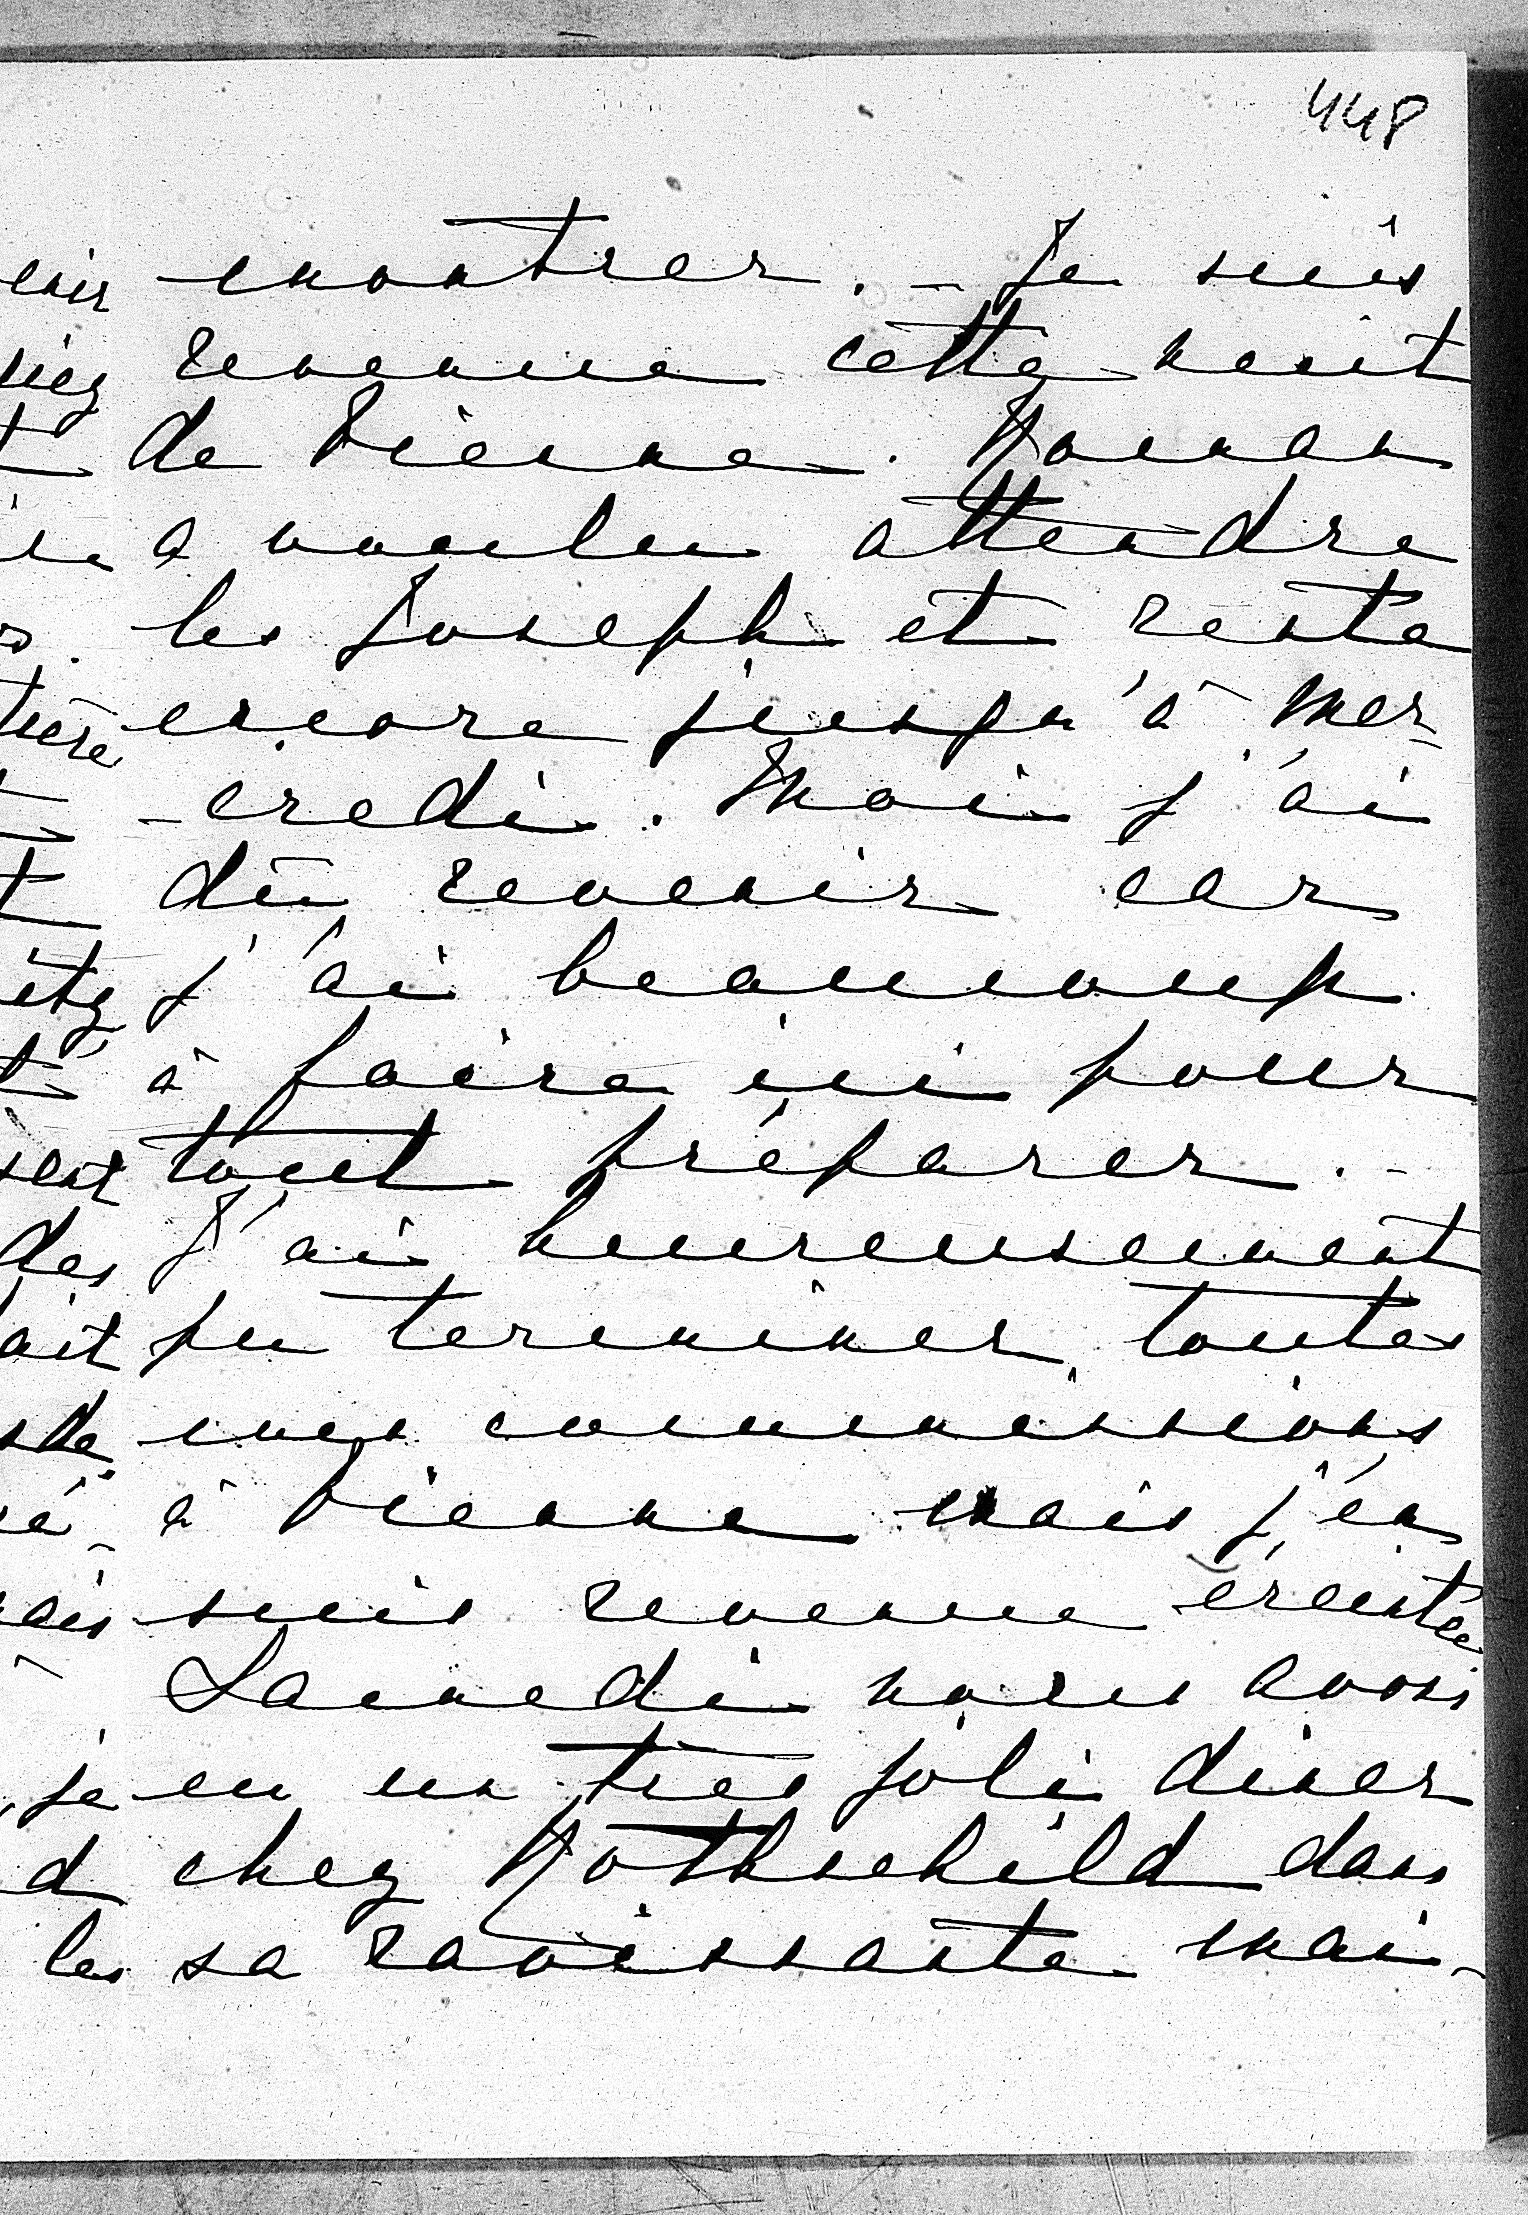 448
montrer. - Je suis
revenue cette nuit
de Vienne. Roman
a voulu attendre
les Joseph et reste
encore jusqu'à mer-
-credi. Moi j'ai
dû revenir car
j'ai beaucoup
à faire ici pour
tout préparer. -
des J'ai heureusement
pu terminer toutes
mes commissions
à Vienne mais j'en
suis revenue éreintée
Samedi nous avons
je eu un très joli diner
d chez Rothschild dans
les sa ravissante mai-